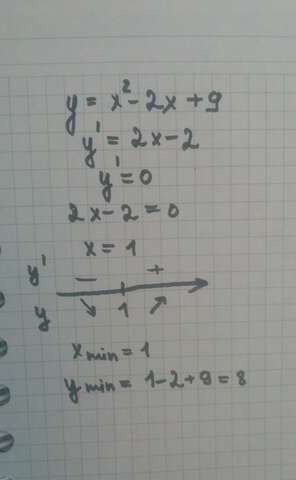 y = x² - 2x + 9
y' = 2x - 2
y' = 0
2x - 2 = 0
x = 1
y' - +
y ↘ 1 ↗
x min = 1
y min = 1 - 2 + 9 = 8